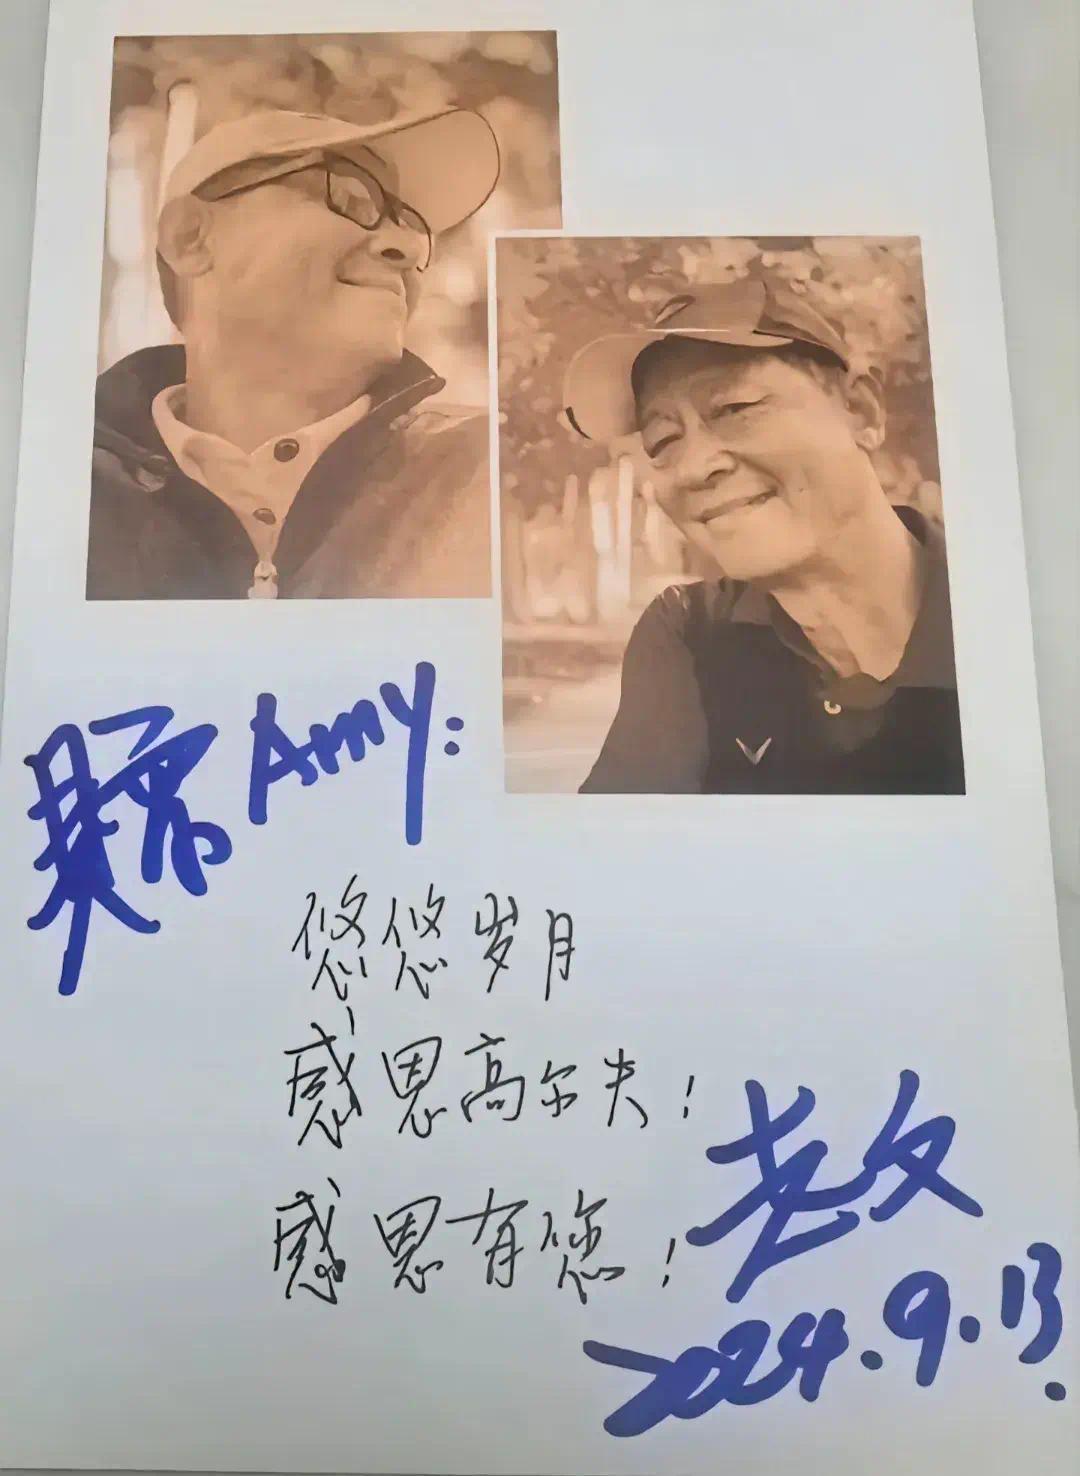 Amy:
悠悠岁月
感恩高尔夫!
感恩有您!
老文
2024.9.13.